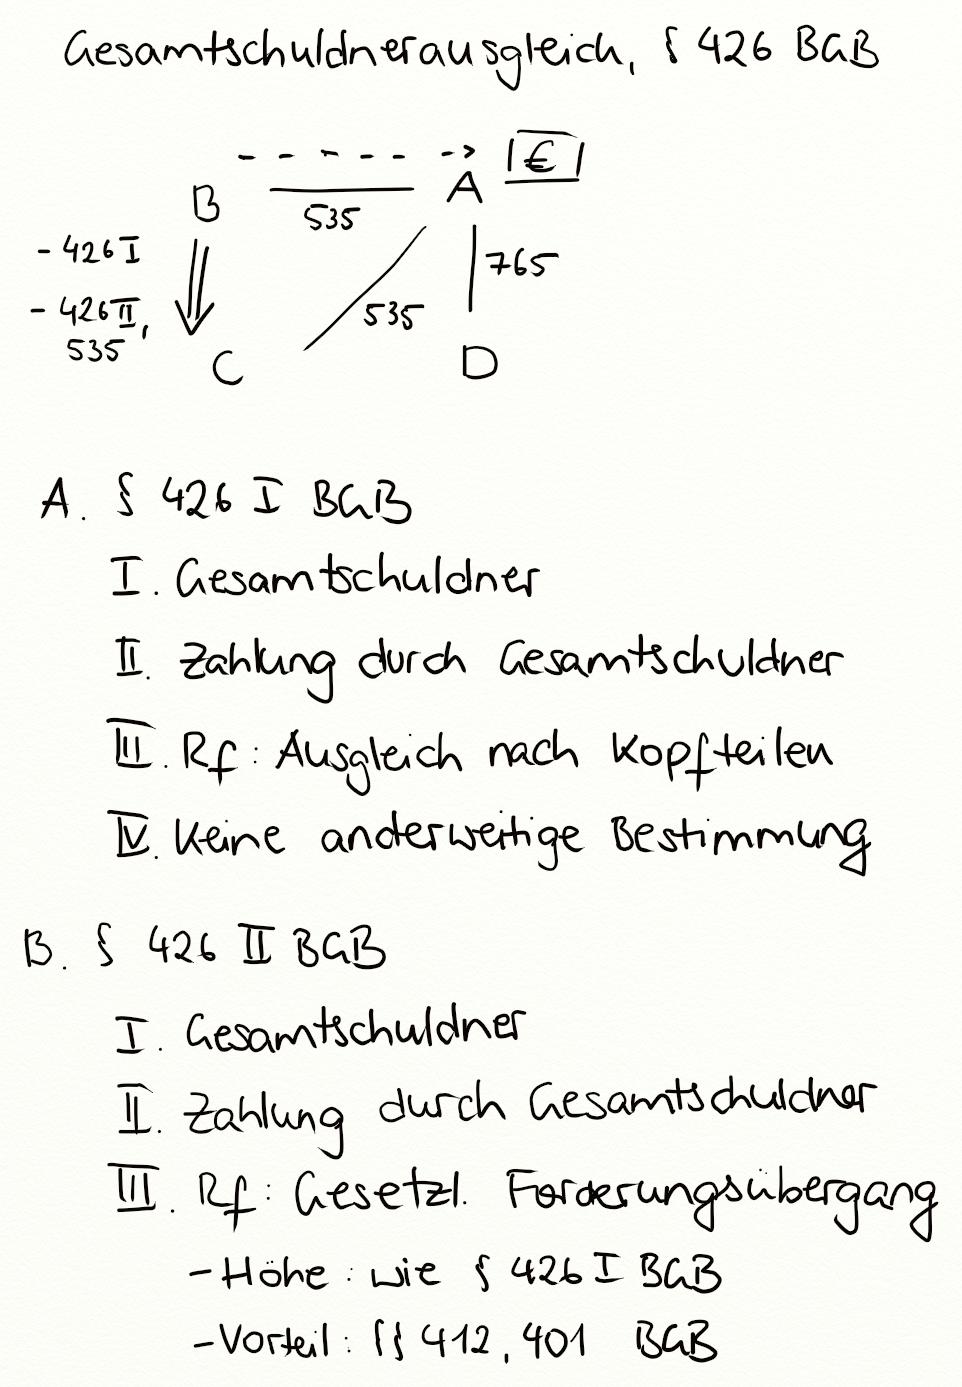 Gesamtschuldnerausgleich, § 426 BGB
€
B 535 A
- 426 I
765
- 426 II,
535
535
C D
A. § 426 I BGB
I. Gesamtschuldner
II. Zahlung durch Gesamtschuldner
III. Rf: Ausgleich nach Kopfteilen
IV. Keine anderweitige Bestimmung
B. § 426 II BGB
I. Gesamtschuldner
II. Zahlung durch Gesamtschuldner
III. Rf: Gesetzl. Forderungsübergang
- Höhe: wie § 426 I BGB
- Vorteil: §§ 412, 401 BGB